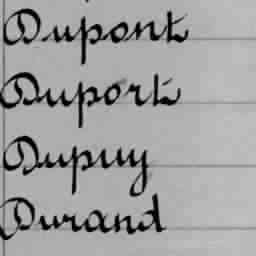 Dupont
Duport
Dupuy
Durand